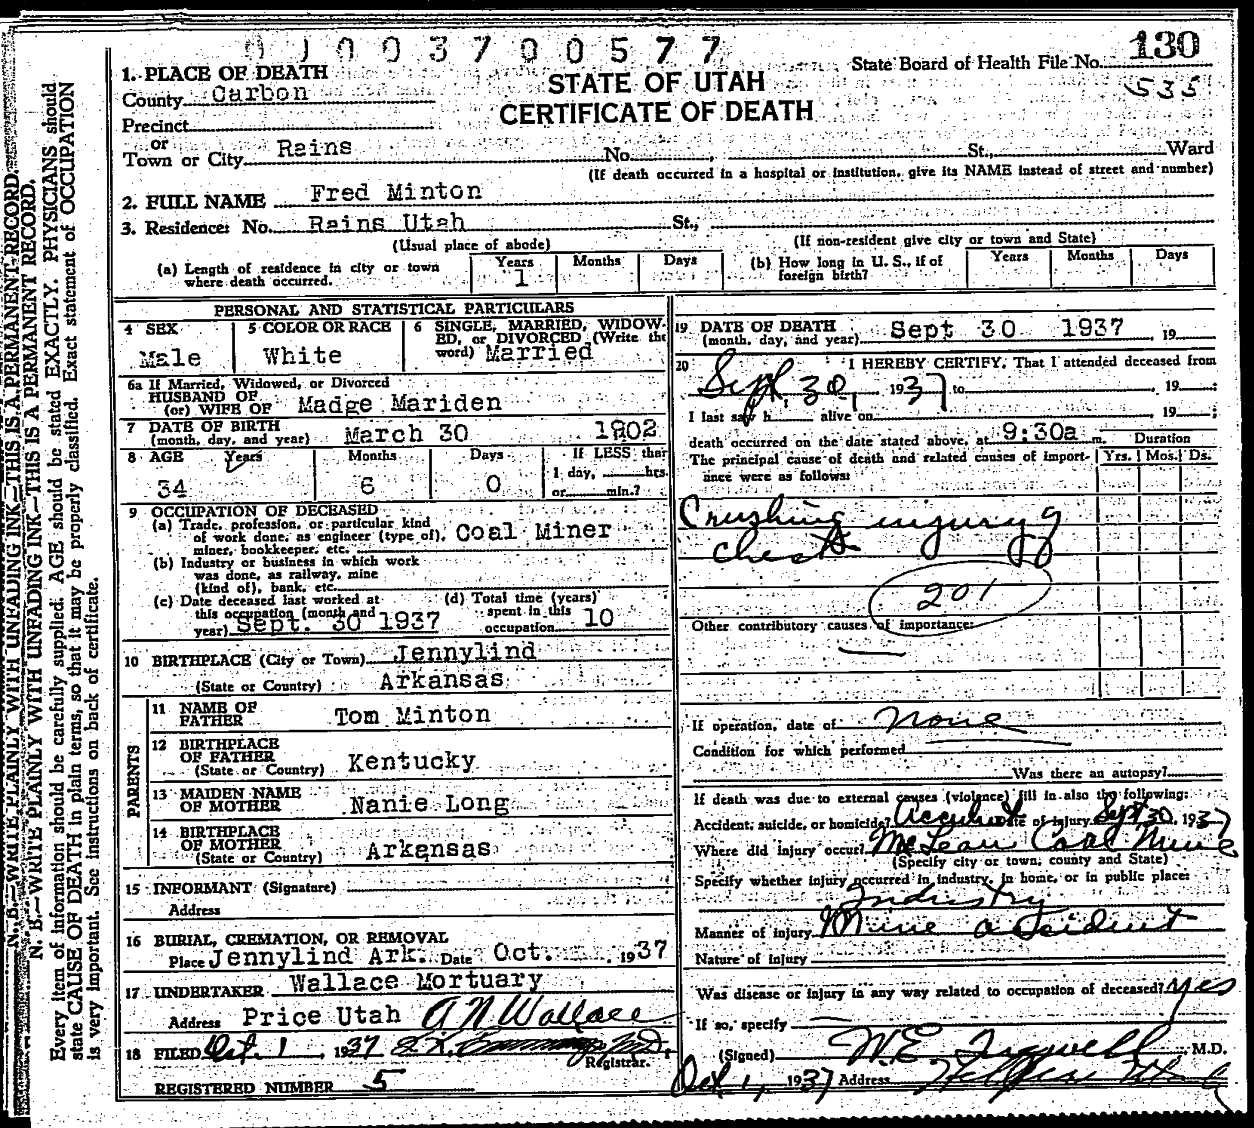 0100370057 7
130
State Board of Health File No.
535
STATE OF UTAH
CERTIFICATE OF DEATH
1. PLACE OF DEATH
County Carbon
Precinct
or
Town or City Rains No. , St., Ward
(If death occurred in a hospital or institution, give its NAME instead of street and number)
2. FULL NAME Fred Minton
3. Residence: No. Rains Utah St.,
(Usual place of abode) (If non-resident give city or town and State)
(a) Length of residence in city or town where death occurred. Years 1 Months Days
(b) How long in U. S., if of foreign birth? Years Months Days
PERSONAL AND STATISTICAL PARTICULARS
4 SEX Male
5 COLOR OR RACE White
6 SINGLE, MARRIED, WIDOWED, or DIVORCED (Write the word) Married
6a If Married, Widowed, or Divorced
HUSBAND OF
(or) WIFE OF Madge Mariden
7 DATE OF BIRTH
(month, day, and year) March 30 1902
8 AGE Years Months Days If LESS than
34 6 0 1 day, hrs.
or min.?
9 OCCUPATION OF DECEASED
(a) Trade, profession, or particular kind
of work done, as engineer (type of), Coal Miner
miner, bookkeeper, etc.
(b) Industry or business in which work
was done, as railway, mine
(kind of), bank, etc.
(c) Date deceased last worked at
this occupation (month and
year) Sept. 30 1937
(d) Total time (years)
spent in this
occupation 10
10 BIRTHPLACE (City or Town) Jennylind
(State or Country) Arkansas
PARENTS
11 NAME OF
FATHER Tom Minton
12 BIRTHPLACE
OF FATHER
(State or Country) Kentucky
13 MAIDEN NAME
OF MOTHER Nanie Long
14 BIRTHPLACE
OF MOTHER
(State or Country) Arkansas
15 INFORMANT (Signature)
Address
16 BURIAL, CREMATION, OR REMOVAL
Place Jennylind Ark. Date Oct. , 1937
17 UNDERTAKER Wallace Mortuary
Address Price Utah A N Wallace
18 FILED Oct. 1, 1937
Registrar.
REGISTERED NUMBER 5
19 DATE OF DEATH
(month, day, and year) Sept 30 1937 , 19
20 I HEREBY CERTIFY, That I attended deceased from
Sept. 30, 1937 to , 19 ;
I last saw h alive on , 19 ;
death occurred on the date stated above, at 9:30a m. Duration
The principal cause of death and related causes of importance were as follows: Yrs. Mos. Ds.
Crushing injury of
chest
201
Other contributory causes of importance:
If operation, date of None
Condition for which performed
Was there an autopsy?
If death was due to external causes (violence) fill in also the following:
Accident, suicide, or homicide? Accident Date of injury Sept 30, 1937
Where did injury occur? McLean Coal Mine
(Specify city or town, county and State)
Specify whether injury occurred in industry, in home, or in public place:
Industry
Manner of injury Mine accident
Nature of injury
Was disease or injury in any way related to occupation of deceased? Yes
If so, specify
(Signed) W.E. , M.D.
Oct 1, 1937 Address Utah
N. B.—WRITE PLAINLY WITH UNFADING INK—THIS IS A PERMANENT RECORD.
N. B.—WRITE PLAINLY WITH UNFADING INK—THIS IS A PERMANENT RECORD.
Every item of information should be carefully supplied. AGE should be stated EXACTLY. PHYSICIANS should
state CAUSE OF DEATH in plain terms, so that it may be properly classified. Exact statement of OCCUPATION
is very important. See instructions on back of certificate.